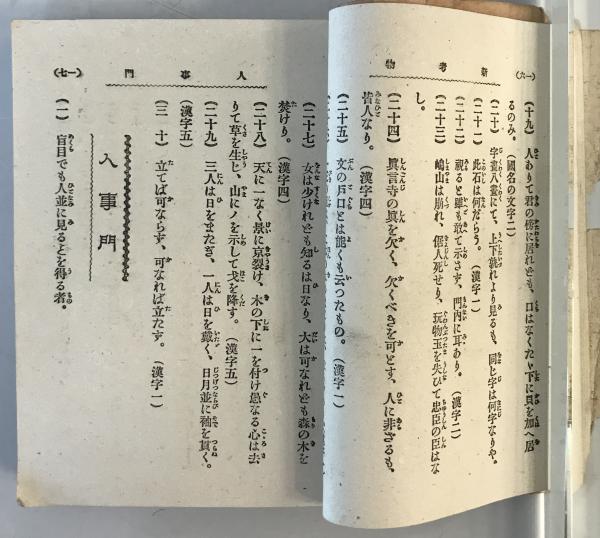 新考物 (一六)
(十九) 人ありて君の傍に居れども、口はなくたゞ下に貝を加へ居
るのみ。(國名の文字二)
(二十) 字畫八畫にて、上下孰れより見るも、同じ字は何字なりや。
(二十一) 此石は何だらう。(漢字一)
(二十二) 視ると雖も敢て示さず、門內に耳あり。(漢字二)
(二十三) 嶋山は崩れ、個人死せり、玩物玉を失ひて忠臣の臣はな
し。
(二十四) 眞言寺の眞を欠く、欠くべきを可とす、人に非ざるも、
皆人なり。(漢字四)
(二十五) 文の戶口とは能くも云つたもの。(漢字一)
(二十七) 女は少けれども知るは日なり、大は可なれども森の木を
焚けり。(漢字四)
(二十八) 天に一なく景に京裂け、木の下に一を付け愚なる心は去
りて草を生じ、山にノを示して戈を降す。(漢字五)
(二十九) 三人は日をまたぎ、一人は日を戴く、日月並に袖を貫く。
(漢字五)
(三十) 立てば可ならず、可なれば立たず。(漢字一)
人事門
(一) 盲目でも人並に見るを得る者。
人事門 (一七)